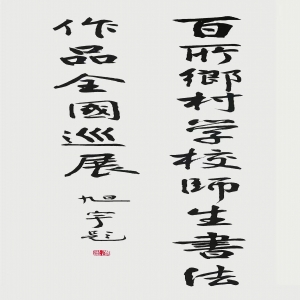 百所鄉村学校師生書法
作品全國巡展
旭宇题